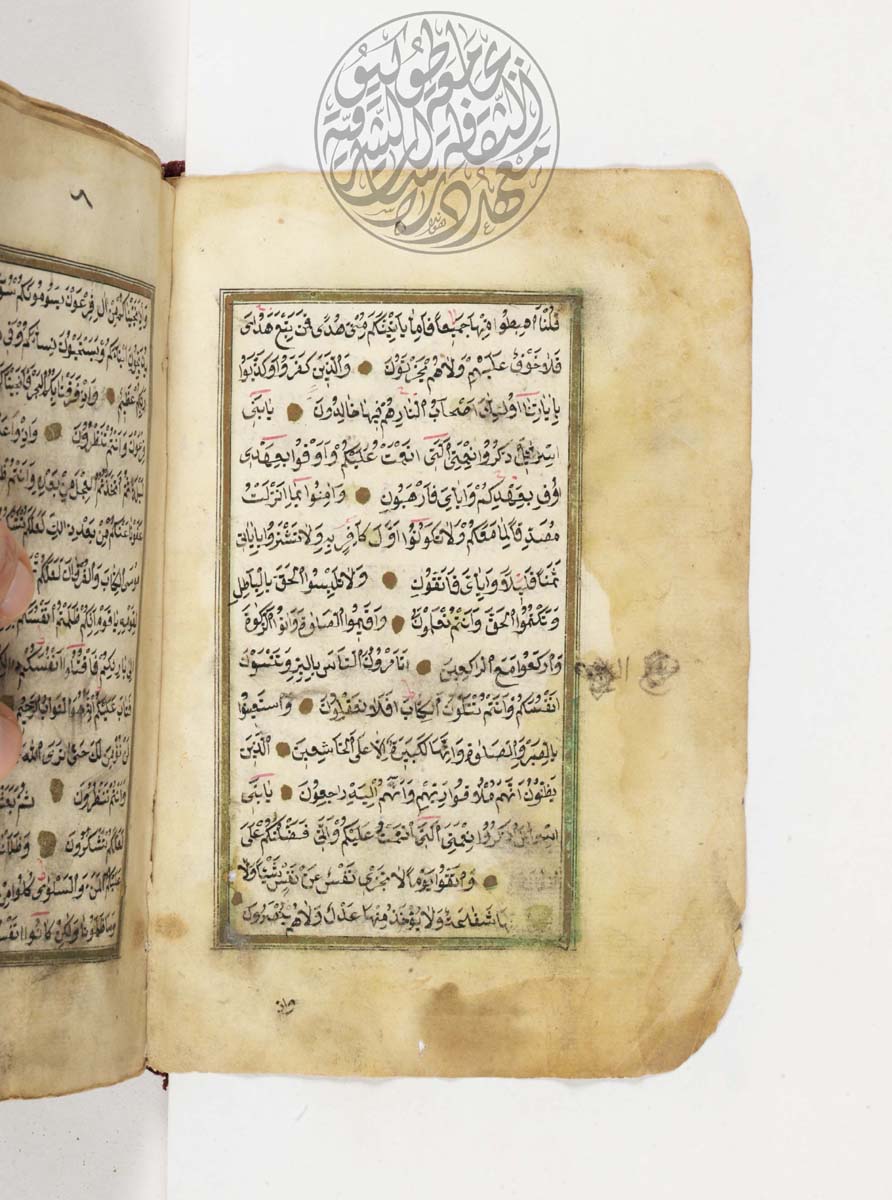 معهد دراسات الثقافة الشرقية جامعة طوكيو
قلنا اهبطوا منها جميعا فاما يأتينكم منى هدى فمن تبع هداى
فلا خوف عليهم ولا هم يحزنون والذين كفروا وكذبوا
باياتنا اولئك اصحاب النار هم فيها خالدون يابنى
اسرائيل اذكروا نعمتى التى انعمت عليكم واوفوا بعهدى
اوف بعهدكم واياى فارهبون وامنوا بما انزلت
مصدقا لما معكم ولا تكونوا اول كافر به ولا تشتروا باياتى
ثمنا قليلا واياى فاتقون ولا تلبسوا الحق بالباطل
وتكتموا الحق وانتم تعلمون واقيموا الصلوة واتوا الزكوة
واركعوا مع الراكعين اتامرون الناس بالبر وتنسون
انفسكم وانتم تتلون الكتاب افلا تعقلون واستعينوا
بالصبر والصلوة وانها لكبيرة الا على الخاشعين الذين
يظنون انهم ملاقوا ربهم وانهم اليه راجعون يابنى
اسرائيل اذكروا نعمتى التى انعمت عليكم وانى فضلتكم على
واتقوا يوما لا تجزى نفس عن نفس شيئا ولا
ها شفاعة ولا يؤخذ منها عدل ولا هم ينصرون
واذ
٨
واذ نجيناكم من ال فرعون يسومونكم سوء
ابناءكم ويستحيون نساءكم وفى
ربكم عظيم واذ فرقنا بكم البحر فانجيناكم
فرعون وانتم تنظرون واذ
ليلة ثم اتخذتم العجل من بعده وانتم
عفونا عنكم من بعد ذلك لعلكم
موسى الكتاب والفرقان لعلكم
لقومه يا قوم انكم ظلمتم انفسكم
الى بارئكم فاقتلوا انفسكم
فتاب عليكم انه هو التواب الرحيم
لن نؤمن لك حتى نرى الله
وانتم تنظرون ثم
لعلكم تشكرون
عليكم المن والسلوى كلوا من
وما ظلمونا ولكن كانوا